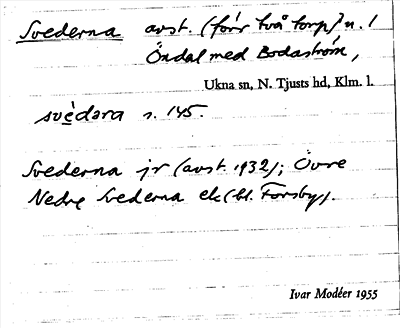 Svederna avst. (förr två torp) u. /
Öndal med Bodaström,
Ukna sn, N. Tjusts hd, Klm. l.
svèdara s. 145.
Svederna jr (avst. 1932); Övre
Nedre Svederna ek (bl. Forsby).
Ivar Modéer 1955